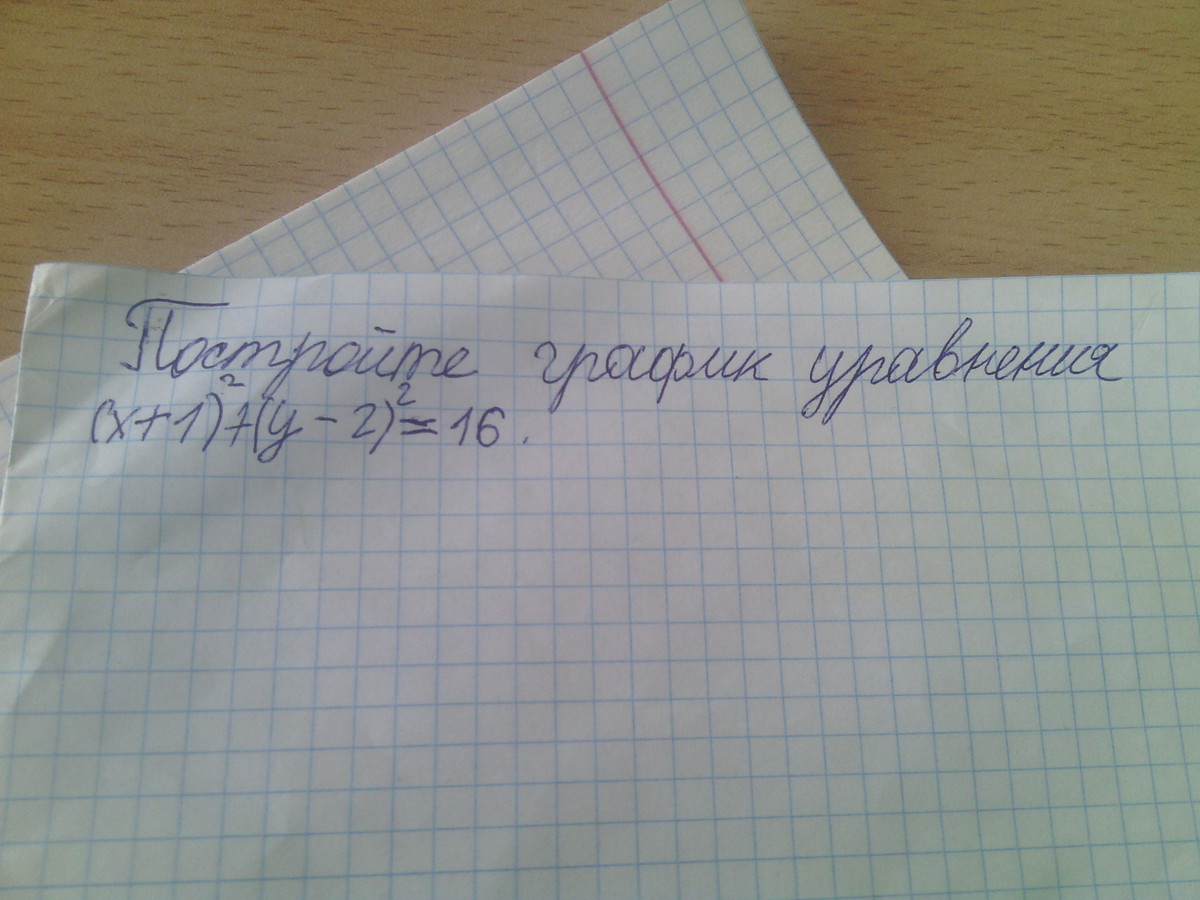 Постройте график уравнения
(x+1)²+(y-2)²=16.